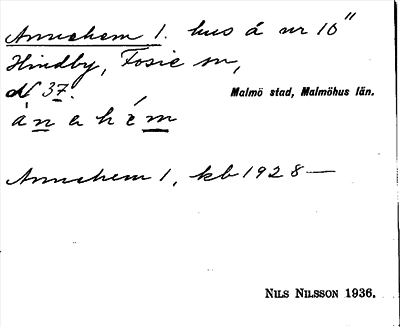 Annehem 1. hus å nr 10"
Hindby, Fosie sn,
df 37. Malmö stad, Malmöhus län.
ánehém
Annehem 1, kb 1928—
NILS NILSSON 1936.